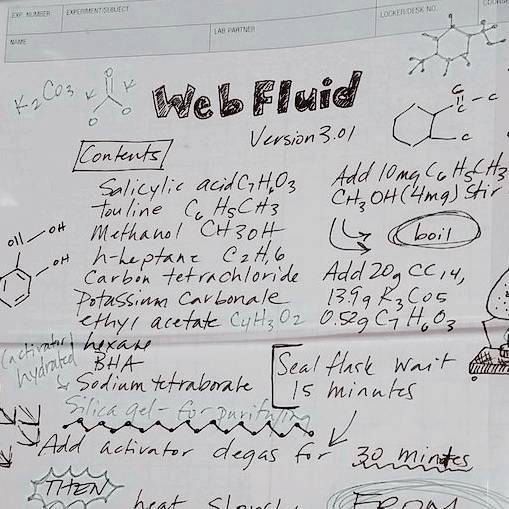 EXP. NUMBER EXPERIMENT/SUBJECT
NAME
LAB PARTNER
LOCKER/DESK NO.
K2CO3
O
K K
Web Fluid
Version 3.01
Contents
Salicylic acid C7H6O3
touline C6H5CH3
Methanol CH3OH
n-heptane C2H,6
Carbon tetrachloride
Potassium Carbonate
ethyl acetate C4H3O2
hexane
BHA
Sodium tetraborate
(activator)
hydrated
Silica gel - for purifying
OH
OH
Add 10mg C6H5CH3
CH3OH (4mg) Stir
boil
Add 20g CC14,
13.9g K3CO5
0.52g C7H6O3
Seal flask wait
15 minutes
Add activator degas for 30 mintes
THEN
heat slowly
FROM